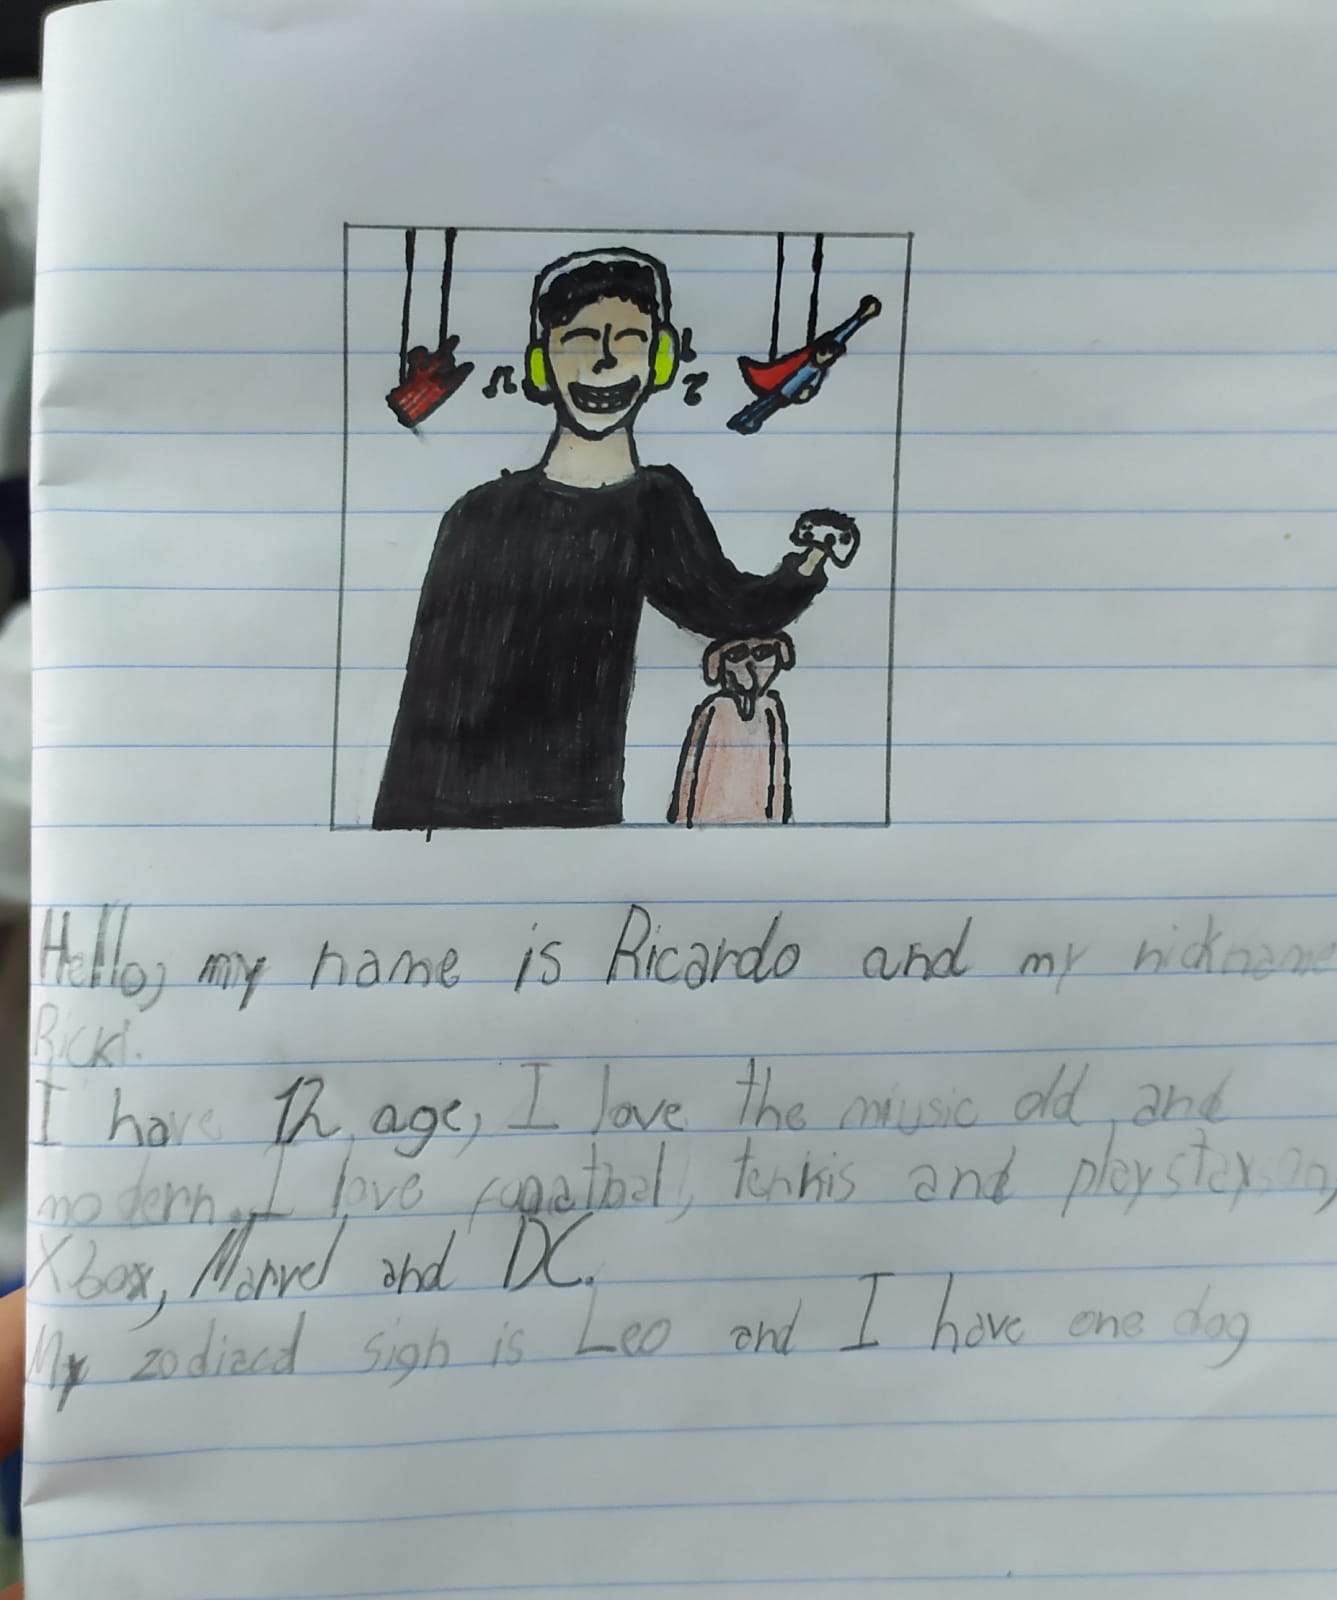 Hello, my name is Ricardo and my nickname
Ricki.
I have 12 age, I love the miusic old, and
modern. I love tennis and playstayson,
Xbox, Marvel and DC.
My zodiacd sign is Leo and I have one dog